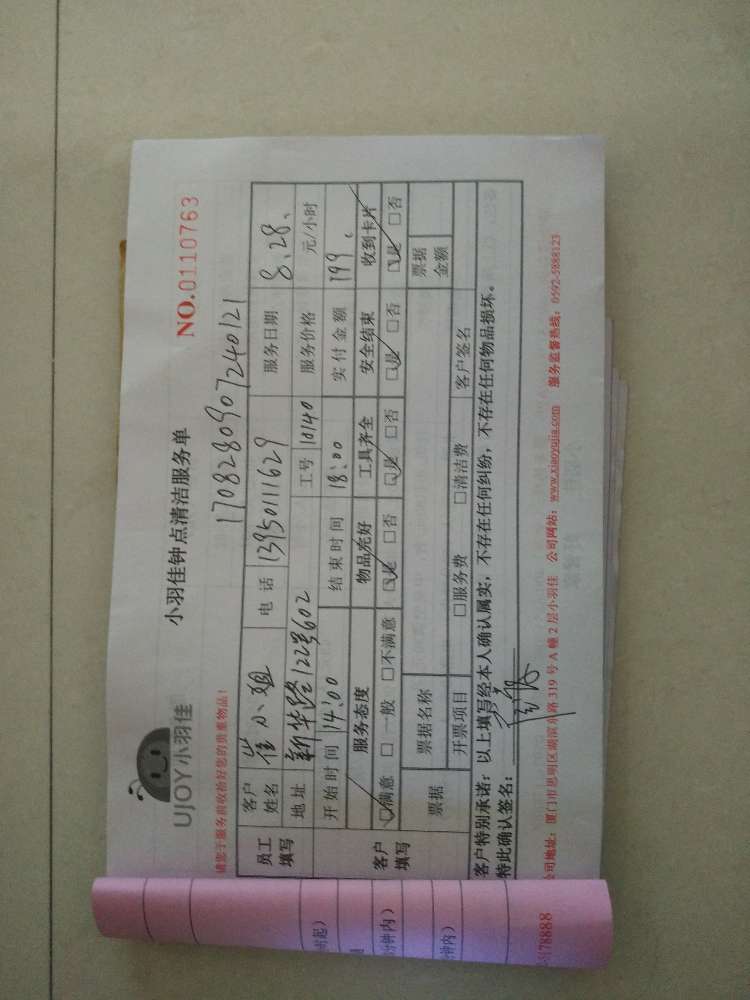 UJOY 小羽佳
小羽佳钟点清洁服务单
NO.0110763
请您于服务前收拾好您的贵重物品!
1708280907240121
员工填写 客户姓名 崔小姐 电话 13950111629 服务日期 8.28、
地址 新华路122号602 工号 10140 服务价格 元/小时
开始时间 14:00 结束时间 18:00 实付金额 199、
客户填写 服务态度 物品完好 工具齐全 安全结束 收到卡片
□满意 □一般 □不满意 □是 □否 □是 □否 □是 □否 □是 □否
票据 票据名称 票据金额
开票项目 □服务费 □清洁费 客户签名
客户特别承诺:以上填写经本人确认属实,不存在任何纠纷,不存在任何物品损坏。
特此确认签名:
公司地址:厦门市思明区湖滨东路319号A幢2层小羽佳 公司网站:www.xiaoyujia.com 服务监督热线:0592-5888123
时起)
分钟内)
分钟内)
5178888